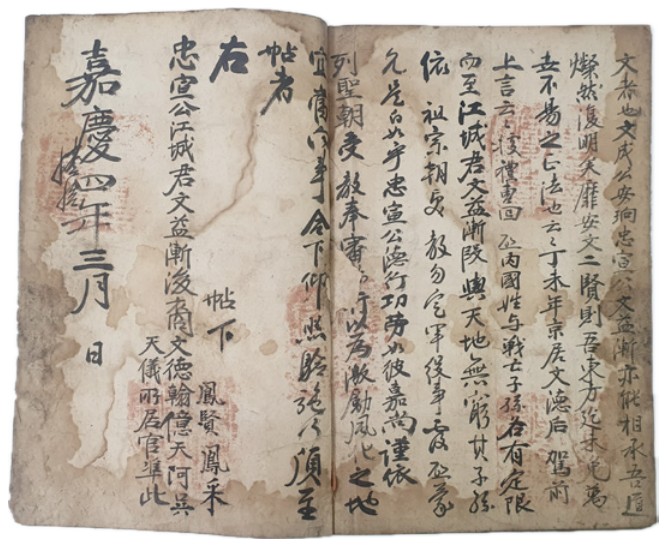 文者也文成公安珦忠宣公文益漸亦能相承吾道
燦然復明矣靡安文二賢則吾東方迄未免為
去不易之正法也云云丁未年京居文德后駕前
上言云云據禮曹回 啓內國姓与戰亡子孫各有定限
而至江城君文益漸段與天地無窮其子孫
依 祖宗朝受 教勿定軍役事覆 啓蒙
允是白如乎忠宣公德行功勞如彼嘉尚謹依
列聖朝受 教奉審 可以為激勵風化之地
宜當向事合下仰照驗施行須至
帖者
右 帖下
忠宣公江城君文益漸後裔文德翰億天阿只
鳳賢鳳采
天儀所居官準此
嘉慶四年三月 日